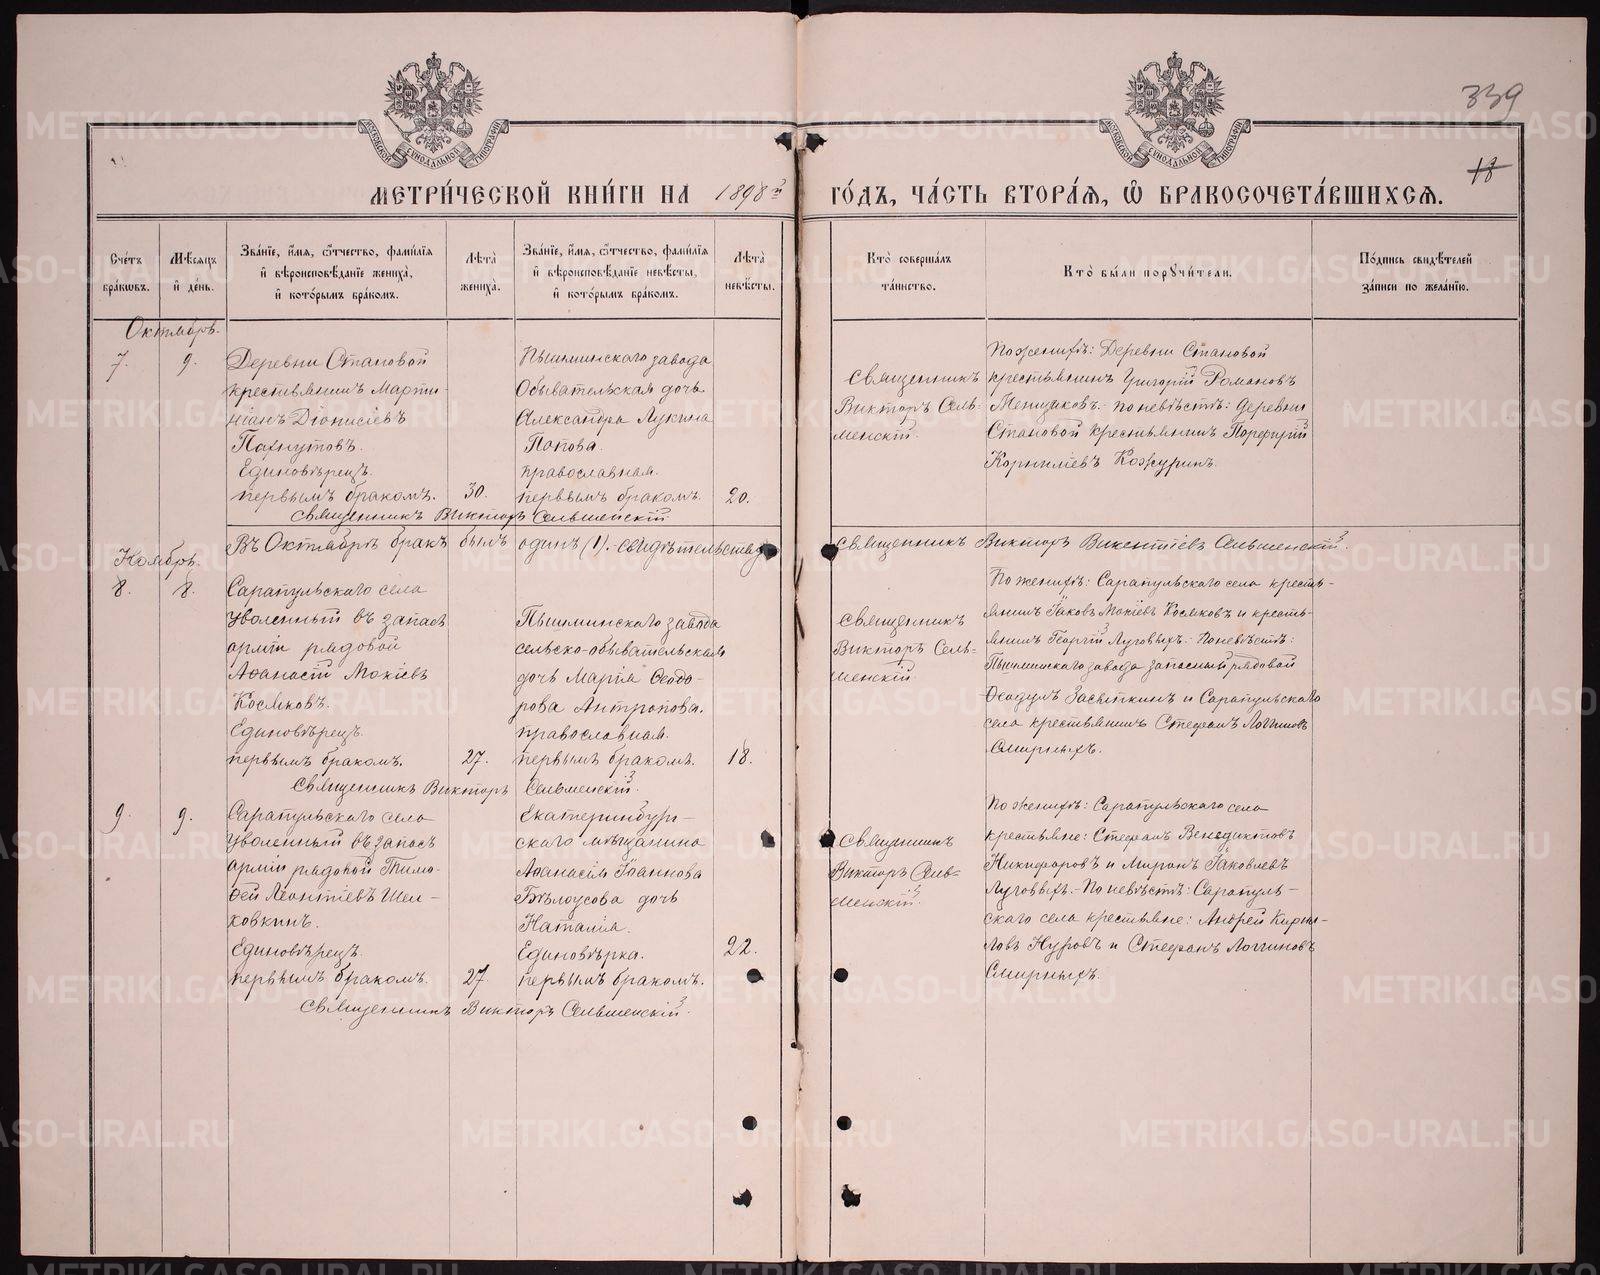 339
18
МОСКОВСКОЙ СѴНОДАЛЬНОЙ ТИПОГРАФІИ
МОСКОВСКОЙ СѴНОДАЛЬНОЙ ТИПОГРАФІИ
МЕТРИ́ЧЕСКОЙ КНИ́ГИ НА 1898й ГО́ДЪ, ЧА́СТЬ ВТОРА́Я, Ѽ БРАКОСОЧЕТА́ВШИХСЯ.
Сче́тъ бра́кѡвъ.
Мѣ́сяцъ и҆ де́нь.
Зва́нїе, и҆́мя, ѻ҆́тчество, фами́лїя
и҆ вѣроисповѣ́данїе жениха̀,
и҆ кото́рымъ бра́комъ.
Лѣта̀ жениха̀.
Зва́нїе, и҆́мя, ѻ҆́тчество, фами́лїя
и҆ вѣроисповѣ́данїе невѣ́сты,
и҆ кото́рымъ бра́комъ.
Лѣта̀ невѣ́сты.
Кто̀ соверша́лъ
та́инство.
Кто̀ бы́ли порꙋчи́тели.
По́дпись свидѣ́телей
за́писи по жела́нїю.
Октябрь.
7.
9.
Деревни Становой
крестьянинъ Марти-
ніанъ Діонисіевъ
Пахнутовъ.
Единовѣрецъ.
первымъ бракомъ.
30.
Пышминскаго завода
Обывательская дочь
Александра Лукина
Попова.
православная.
первымъ бракомъ.
20.
Священникъ
Викторъ Сель-
менскій.
По женихѣ: Деревни Становой
крестьянинъ Григорій Романовъ
Меншиковъ. По невѣстѣ: деревни
Становой крестьянинъ Порфирій
Корниліевъ Кожуринъ.
Священникъ Викторъ Сельменскій
Въ Октябрѣ бракъ былъ одинъ (1). Свидѣтельствую
Священникъ Викторъ Викентіевъ Сельменскій.
Ноябрь.
8.
8.
Сарапульскаго села
уволенный въ запасъ
арміи рядовой
Аѳанасій Мокіевъ
Косяковъ.
Единовѣрецъ.
первымъ бракомъ.
27.
Пышминскаго завода
сельско-обывательская
дочь Марія Ѳеодо-
рова Антропова.
православная.
первымъ бракомъ.
18.
Священникъ
Викторъ Сель-
менскій.
По женихѣ: Сарапульскаго села кресть-
янинъ Іаковъ Мокіевъ Косяковъ и кресть-
янинъ Георгій Луговыхъ. По невѣстѣ:
Пышминскаго завода запасный рядовой
Засыпкинъ и Сарапульскаго
села крестьянинъ Стефанъ Логгиновъ
Смирныхъ.
Священникъ Викторъ Сельменскій.
9.
9.
Сарапульскаго села
уволенный въ запасъ
арміи рядовой Тимо-
фей Леонтіевъ Шел-
ковкинъ.
Единовѣрецъ.
первымъ бракомъ.
27
Екатеринбург-
скаго мѣщанина
Аѳанасія Іоаннова
Бѣлоусова дочь
Наталія.
Единовѣрка.
первымъ бракомъ.
22.
Священникъ
Викторъ Сель-
менскій.
По женихѣ: Сарапульскаго села
крестьяне: Стефанъ Венедиктовъ
Никифоровъ и Миронъ Іаковлевъ
Луговыхъ. - По невѣстѣ: Сарапуль-
скаго села крестьяне: Андрей Кирил-
ловъ Нуровъ и Стефанъ Логгиновъ
Смирныхъ.
Священникъ Викторъ Сельменскій.